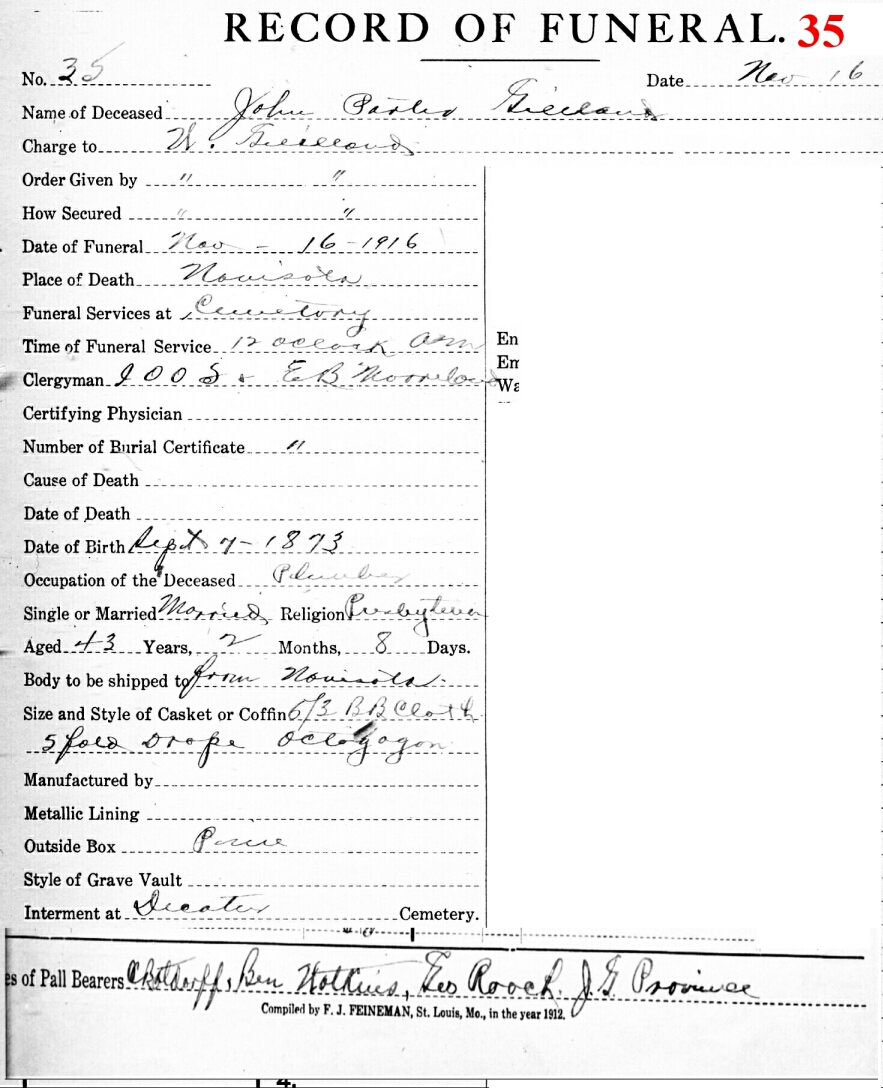 RECORD OF FUNERAL. 35
No. 35 Date Nov 16
Name of Deceased John Gilliland
Charge to W. Gilliland
Order Given by " "
How Secured " "
Date of Funeral Nov - 16-1916
Place of Death
Funeral Services at Cemetory
Time of Funeral Service 12 oclock am
Clergyman I O O & E B
Certifying Physician
Number of Burial Certificate "
Cause of Death
Date of Death
Date of Birth Sept 7-1873
Occupation of the Deceased Plumber
Single or Married Married Religion
Aged 43 Years, 2 Months, 8 Days.
Body to be shipped to from
Size and Style of Casket or Coffin 6/3 BB Cloth
5 fold Drape Octogagon
Manufactured by
Metallic Lining
Outside Box Pine
Style of Grave Vault
Interment at Decatur Cemetery.
En
Em
Wa
es of Pall Bearers Ben Geo Roach. J. G. Province
Compiled by F. J. FEINEMAN, St. Louis, Mo., in the year 1912.
4.